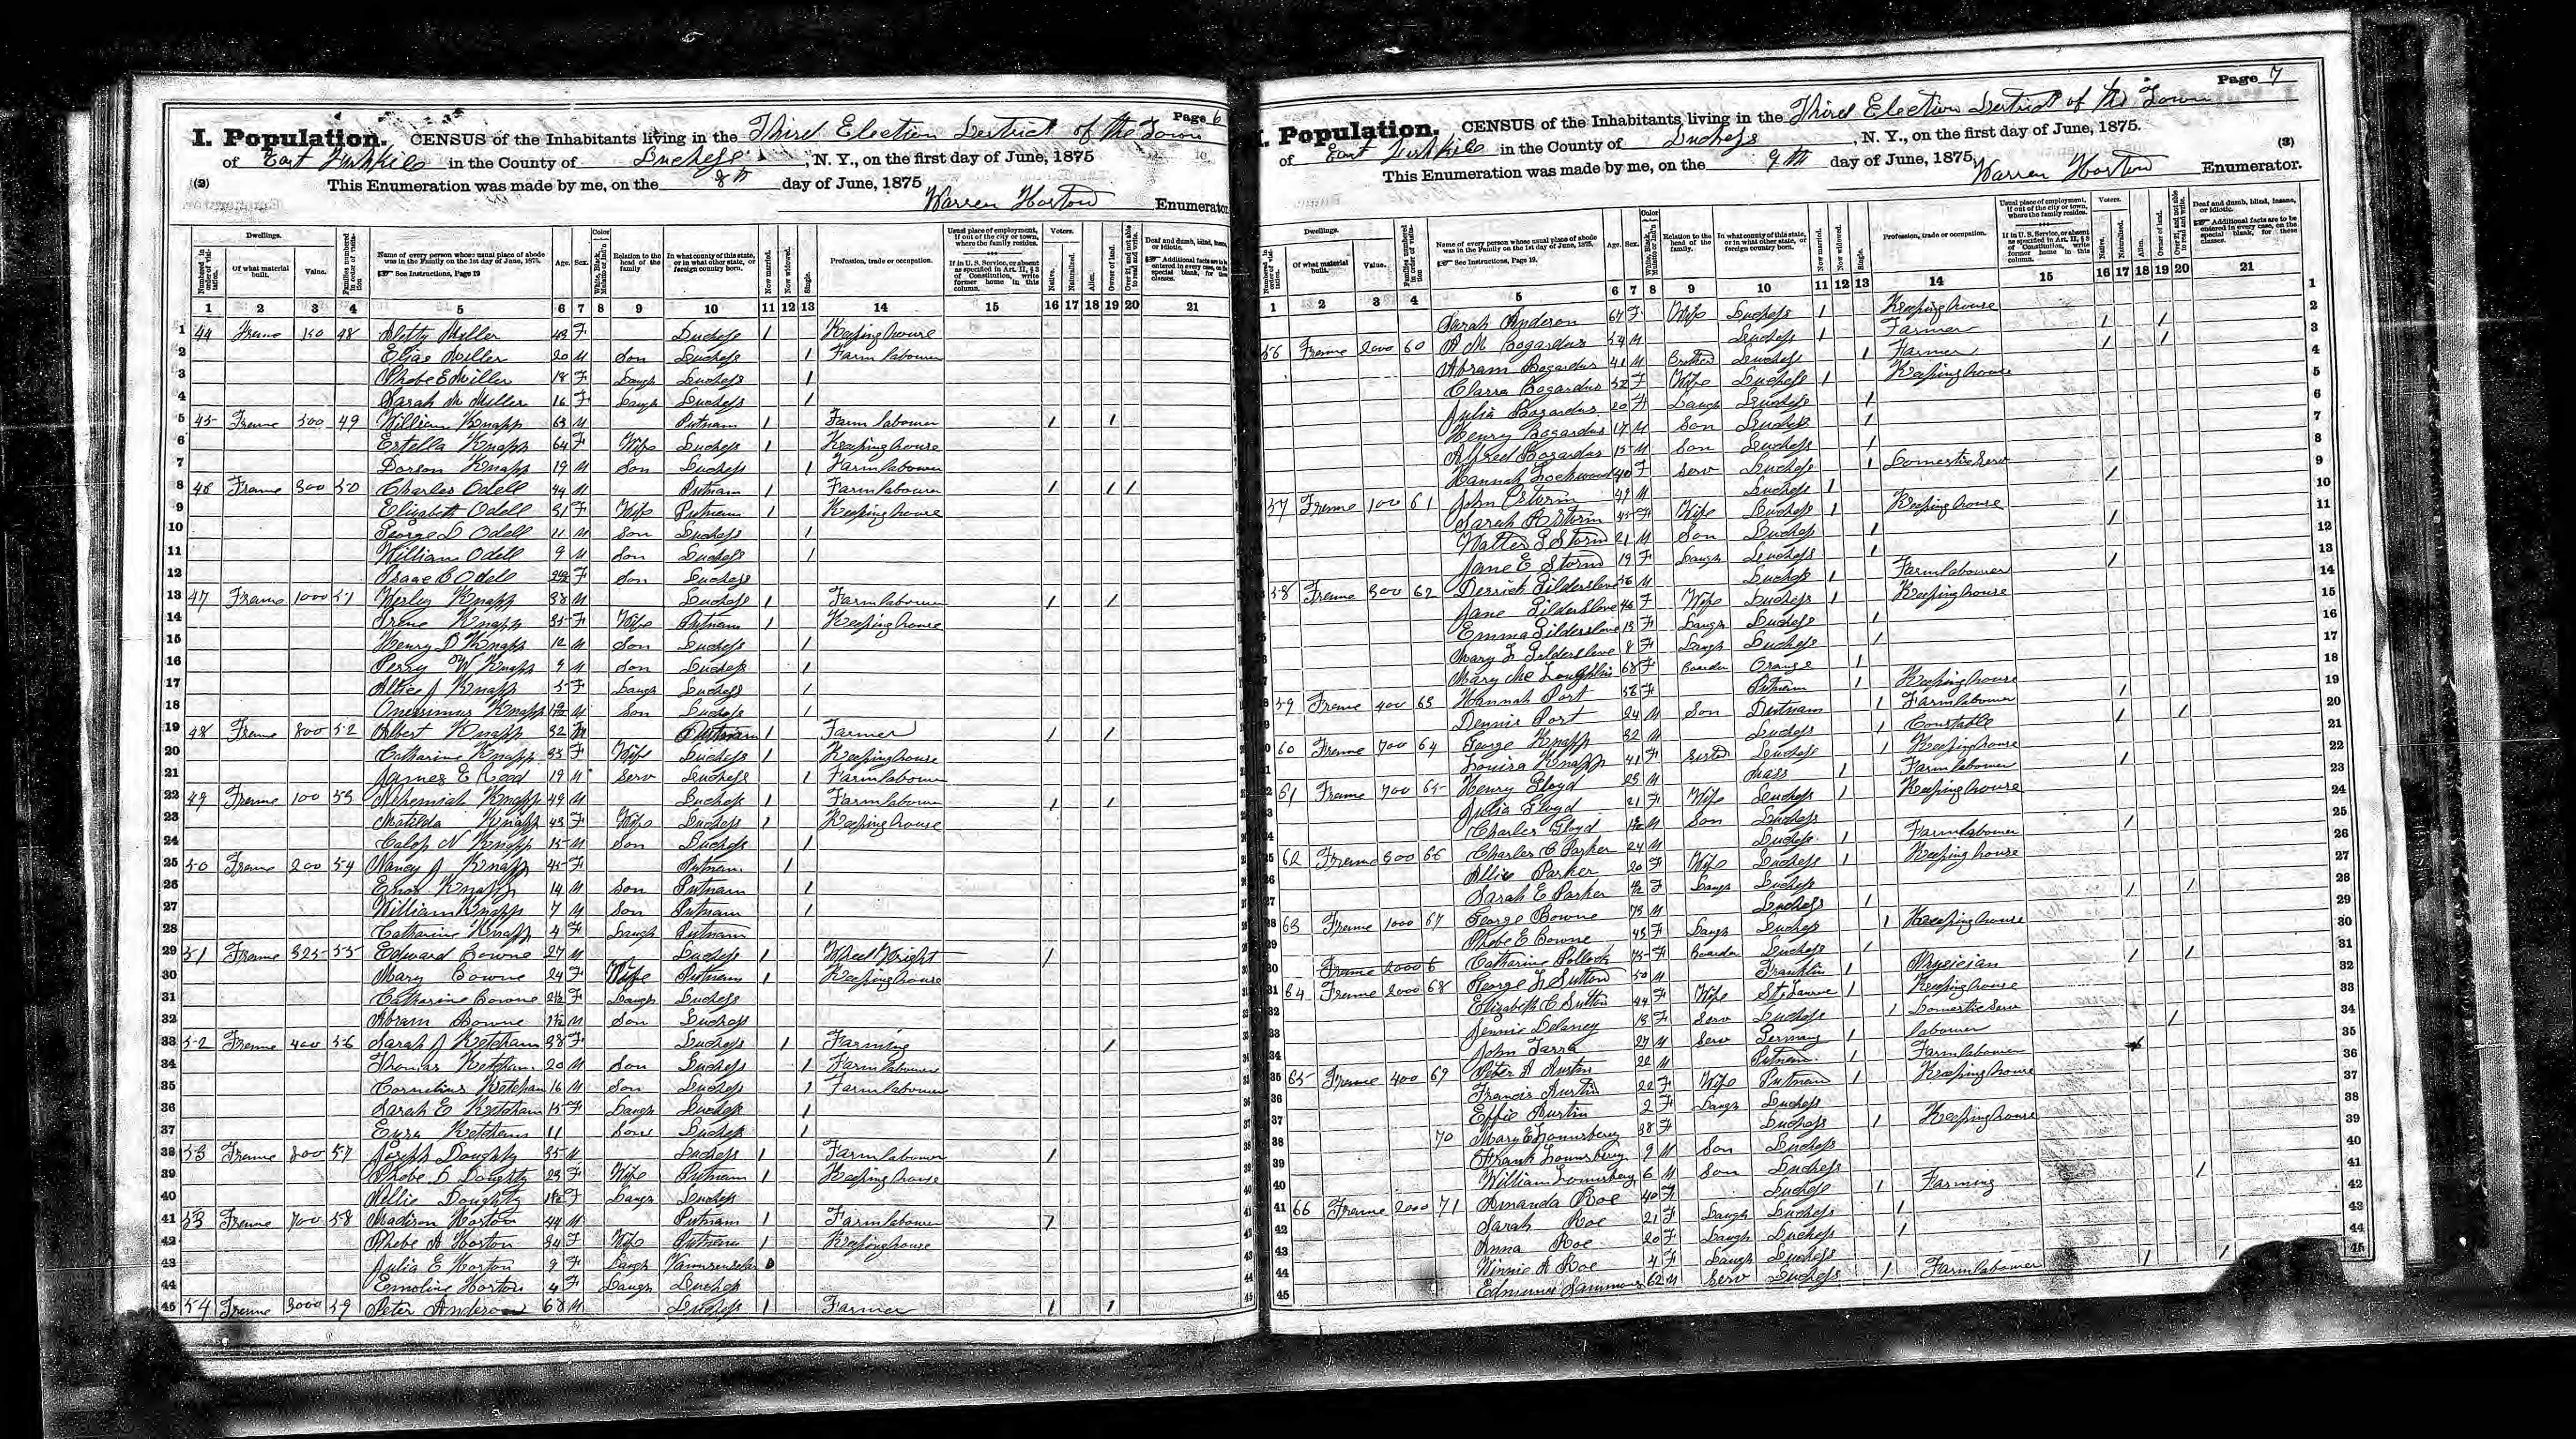 Page 6
I. Population. CENSUS of the Inhabitants living in the Third Election District of the Town
of East Fishkill in the County of Duchess, N. Y., on the first day of June, 1875
(2) This Enumeration was made by me, on the 8th day of June, 1875
Warren Horton Enumerator
Dwellings. Color Voters.
1 2 3 4 5 6 7 8 9 10 11 12 13 14 15 16 17 18 19 20 21
1 44 Frame 150 48 Miller 43 F Duchess 1 Keeping house
2 Elias Miller 20 M Son Duchess 1 Farm labourer
3 Phebe E Miller 18 F Daugh Duchess 1
4 Sarah M Miller 16 F Daugh Duchess 1
5 45 Frame 500 49 William Knapp 63 M Putnam 1 Farm labourer 1 1
6 Estella Knapp 64 F Wife Duchess 1 Keeping house
7 Dorson Knapp 19 M Son Duchess 1 Farm labourer
8 46 Frame 300 50 Charles Odell 44 M Putnam 1 Farm labourer 1 1 1
9 Elizabeth Odell 31 F Wife Putnam 1 Keeping house
10 George D Odell 11 M Son Duchess 1
11 William Odell 9 M Son Duchess 1
12 Isaac C Odell F Son Duchess
13 47 Frame 1000 51 Wesley Knapp 38 M Duchess 1 Farm labourer 1 1
14 Irene Knapp 35 F Wife Putnam 1 Keeping house
15 Henry D Knapp 12 M Son Duchess 1
16 Perry W Knapp 9 M Son Duchess 1
17 Allice J Knapp 5 F Daugh Duchess 1
18 Onessimus Knapp M Son Duchess 1
19 48 Frame 800 52 Albert Knapp 32 M Putnam 1 Farmer 1 1
20 Catharine Knapp 33 F Wife Duchess 1 Keeping house
21 James E Reed 19 M Serv Duchess 1 Farm labourer
22 49 Frame 100 53 Nehemiah Knapp 49 M Duchess 1 Farm labourer 1 1
23 Matilda Knapp 43 F Wife Duchess 1 Keeping house
24 Calop N Knapp 15 M Son Duchess 1
25 50 Frame 200 54 Nancy J Knapp 45 F Putnam 1
26 Enos Knapp 14 M Son Putnam 1
27 William Knapp 7 M Son Putnam 1
28 Catharine Knapp 4 F Daugh Putnam
29 51 Frame 325 55 Edward Bowne 27 M Duchess 1 Wheel Wright 1
30 Mary Bowne 24 F Wife Putnam 1 Keeping house
31 Catharine Bowne F Daugh Duchess
32 Abram Bowne M Son Duchess
33 52 Frame 400 56 Sarah J Ketcham 38 F Duchess 1 Farming 1
34 Thomas Ketcham 20 M Son Duchess 1 Farm labourer
35 Cornelius Ketcham 16 M Son Duchess 1 Farm labourer
36 Sarah E Ketcham 15 F Daugh Duchess 1
37 Ezra Ketcham 11 Son Duchess 1
38 53 Frame 800 57 Joseph Doughty 35 M Duchess 1 Farm labourer 1
39 Phebe D Doughty 23 F Wife Putnam 1 Keeping house
40 Nellie Doughty F Daugh Duchess
41 53 Frame 700 58 Madison Horton 44 M Putnam 1 Farm labourer 1
42 Phebe A Horton 34 F Wife Putnam 1 Keeping house
43 Julia E Horton 9 F Daugh
44 Emoline Horton 4 F Daugh Duchess
45 54 Frame 3000 59 Peter Anderson 68 M Duchess 1 Farmer 1 1
Page 7
I. Population. CENSUS of the Inhabitants living in the Third Election District of the Town
of East Fishkill in the County of Duchess, N. Y., on the first day of June, 1875.
(3) This Enumeration was made by me, on the 9th day of June, 1875,
Warren Horton Enumerator.
Dwellings. Color Voters.
1 2 3 4 5 6 7 8 9 10 11 12 13 14 15 16 17 18 19 20 21
Sarah Anderson 64 F Wife Duchess 1 Keeping house
56 Frame 2000 60 A M Bogardus 54 M Duchess 1 Farmer 1 1
Abram Bogardus 41 M Brother Duchess 1 Farmer 1 1
Clarra Bogardus 52 F Wife Duchess 1 Keeping house
Julia Bogardus 20 F Daugh Duchess 1
Henry Bogardus 17 M Son Duchess 1
Alfred Bogardus 15 M Son Duchess 1
Hannah Lockwood 40 F Serv Duchess 1 Domestic Serv
57 Frame 100 61 John Storm 49 M Duchess 1 1
Sarah R Storm 45 F Wife Duchess 1 Keeping house
Walter S Storm 21 M Son Duchess 1 1
Jane E Storm 19 F Daugh Duchess 1
58 Frame 300 62 Derrick Gildersleve 56 M Duchess 1 Farm labourer 1
Jane Gildersleve 46 F Wife Duchess 1 Keeping house
Emma Gildersleve 13 F Daugh Duchess 1
Mary L Gildersleve 8 F Daugh Duchess 1
Mary Mc Loughlin 68 F Boarder Orange 1
59 Frame 400 63 Hannah Port 58 F Putnam 1 Keeping house
Dennis Port 24 M Son Putnam 1 Farm labourer 1
60 Frame 700 64 George Knapp 32 M Duchess 1 Constable 1 1
Louisa Knapp 41 F Sister Duchess 1 Keeping house
61 Frame 700 65 Henry Gloyd 25 M Mass 1 Farm labourer 1
Julia Gloyd 21 F Wife Duchess 1 Keeping house
Charles Gloyd M Son Duchess
62 Frame 500 66 Charles C Parker 24 M Duchess 1 Farm labourer 1
Allie Parker 20 F Wife Duchess 1 Keeping house
Sarah E Parker F Daugh Duchess
63 Frame 1000 67 George Bowne 73 M Duchess 1 1 1
Phebe E Bowne 43 F Daugh Duchess 1 Keeping house
Frame 2000 6 Catharine Pollock 75 F Boarder Duchess 1
64 Frame 2000 68 George L Sutton 50 M Franklin 1 Physician 1 1
Elizabeth C Sutton 44 F Wife St Lawre 1 Keeping house
Jennie Delaney 13 F Serv Duchess 1 Domestic Serv
John Tarra 27 M Serv Germany 1 labourer 1
65 Frame 400 69 Peter A Austin 22 M Putnam 1 Farm labourer
Francis Austin 22 F Wife Putnam 1 Keeping house
Effie Austin 2 F Daugh Duchess
70 Mary E Lounsbery 38 F Duchess 1 Keeping house
Frank Lounsbery 9 M Son Duchess
William Lounsbery 6 M Son Duchess
66 Frame 2000 71 Amanda Roe 40 F Duchess 1 Farming 1
Sarah Roe 21 F Daugh Duchess 1
Anna Roe 20 F Daugh Duchess 1
Winnie A Roe 4 F Daugh Duchess
Edmund Sammons 62 M Serv Duchess 1 Farm labourer 1 1